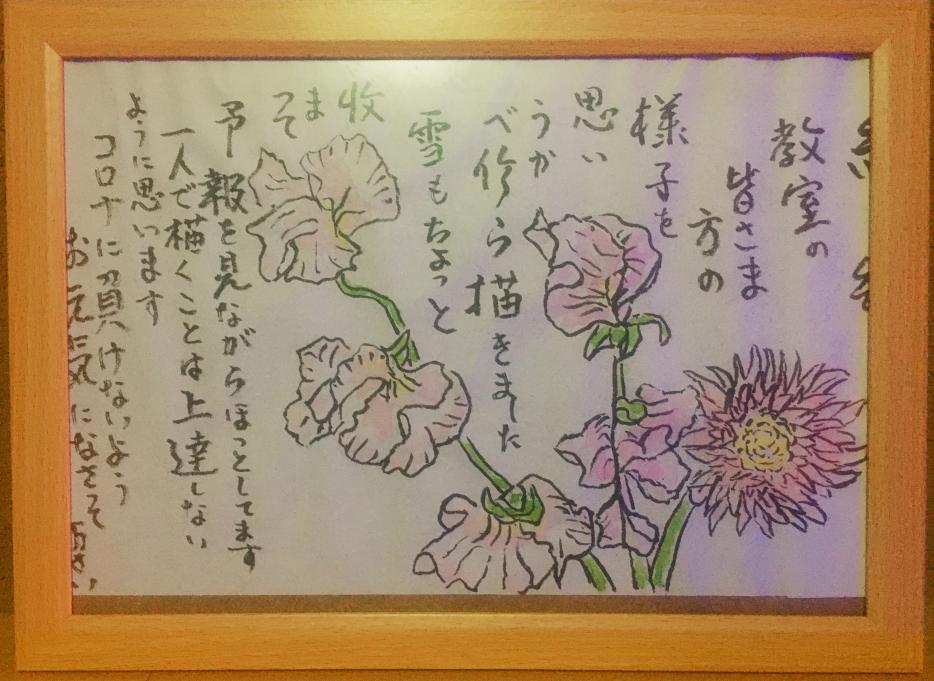 教室の
皆さま
方の
様子を
思い
うか
べ作ら描きました
雪もちょっと
收
ま
って
予報を見ながらほっとしてます
一人で描くことは上達しない
ように思います
コロナに負けないよう
お元気になさって下さい